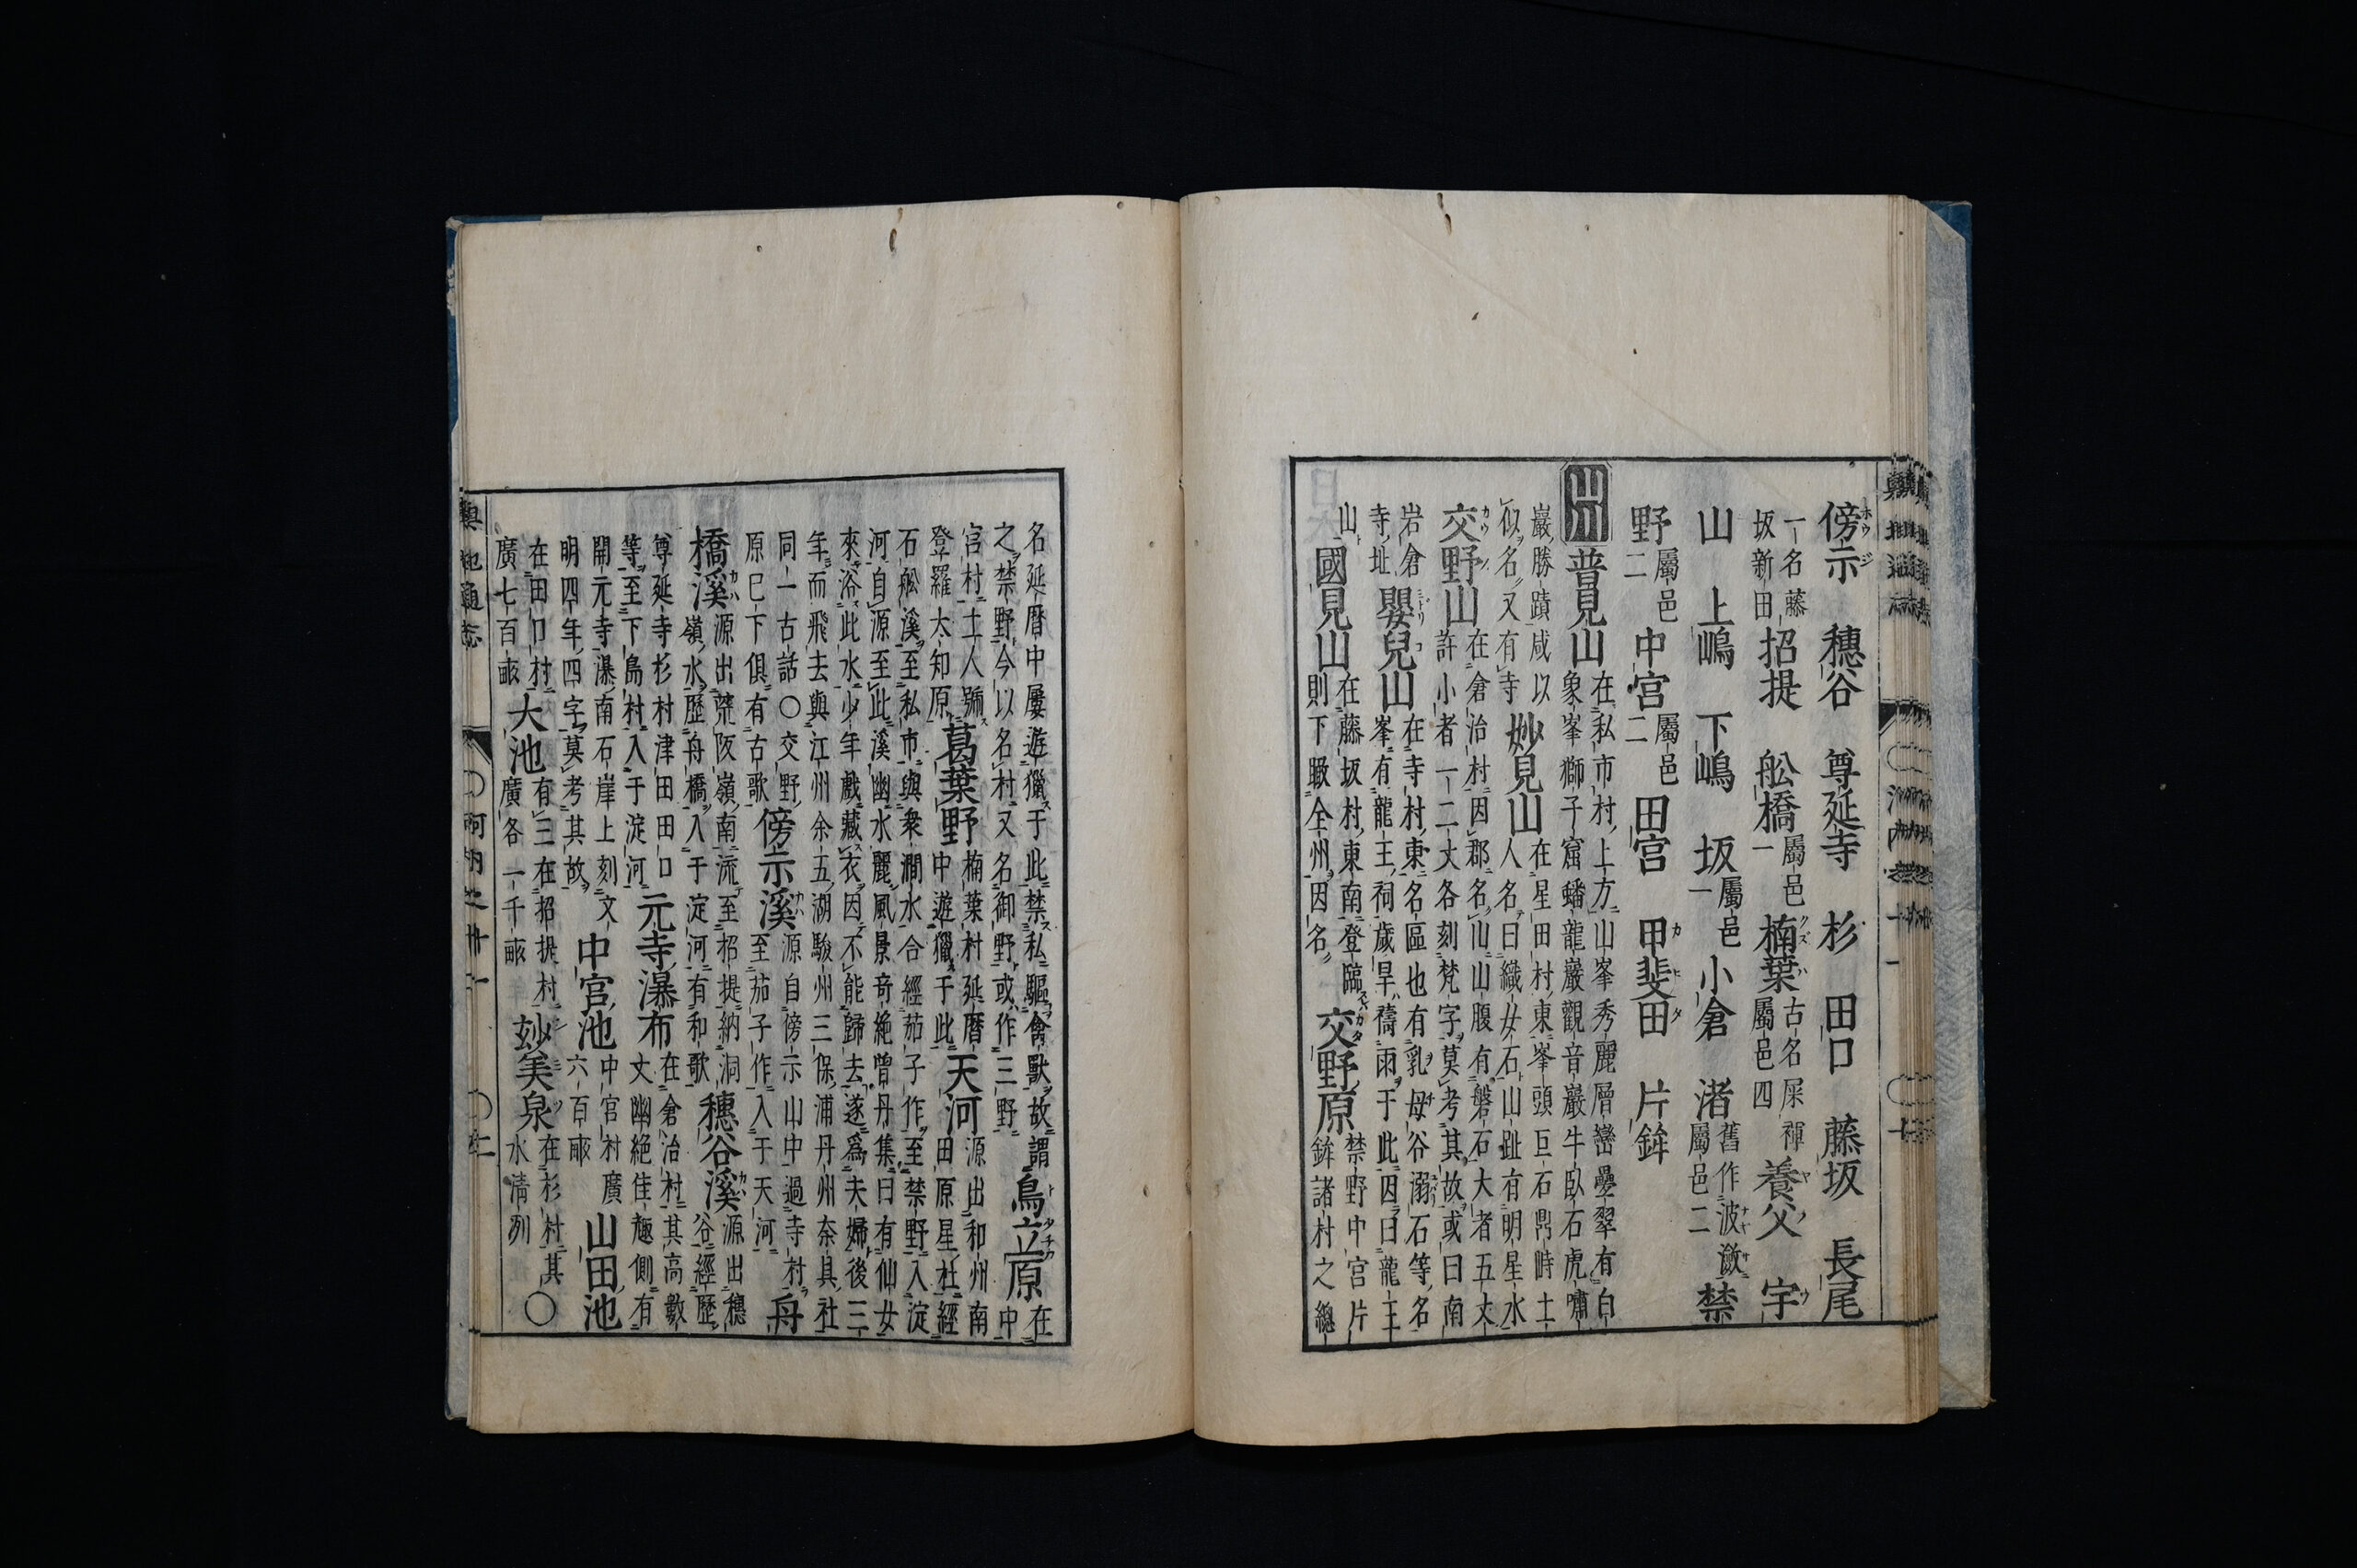 傍示 穗谷 尊延寺 杉 田口 藤坂 長尾
一名藤坂新田 招提 舩橋 屬邑一 楠葉 古名屎褌屬邑四 養父 宇
山 上嶋 下嶋 坂 屬邑一 小倉 渚 舊作波瀲屬邑二 禁
野 屬邑二 中宮 屬邑二 田宮 甲斐田 片鉾
山川 普見山 在私市村上方山峯秀麗層巒疊翠有白象峯獅子窟蟠龍巖觀音巖牛臥石虎嘯
巖勝蹟咸以似名又有寺 妙見山 在星田村東峯頭巨石鼎峙土人名曰織女石山趾有明星水
交野山 在倉治村因郡名山山腹有磐石大者五丈許小者一二丈各刻梵字莫考其故或曰南
岩倉寺址 嬰兒山 在寺村東名區也有乳母谷溺石等名峯有龍王祠歲旱禱雨于此因曰龍王
山 國見山 在藤坂村東南登臨則下瞰全州因名 交野原 禁野中宮片鉾諸村之總
名延暦中屢遊獵于此禁私驅禽獸故謂之禁野今以名村又名御野或作三野 鳥立原 在中
宮村土人號登羅大知原 葛葉野 楠葉村延暦中遊獵于此 天河 源出和州南田原星杜經
石舩溪至私市與衆澗水合經茄子作至禁野入淀河自源至此溪幽水麗風景奇絶曽丹集曰有仙女
來浴此水少年戲藏衣因不能歸去遂爲夫婦後三年而飛去與江州余五湖駿州三保浦丹州奈具社
同一古話○交野原已下俱有古歌 傍示溪 源自傍示山中過寺村至茄子作入于天河 舟
橋溪 源出荒阪嶺南流至招提納洞嶺水歷舟橋入于淀河有和歌 穗谷溪 源出穗谷經歷
尊延寺杉村津田田口等至下島村入于淀河 元寺瀑布 在倉治村其高數丈幽絶佳趣側有
開元寺瀑南石崖上刻文明四年四字莫考其故 中宮池 中宮村廣六百畝 山田池
在田口村廣七百畝 大池 有三在招提村廣各一千畝 玅美泉 在杉村其水清冽 ○
輿地通志 ○河内之卅一 ○二